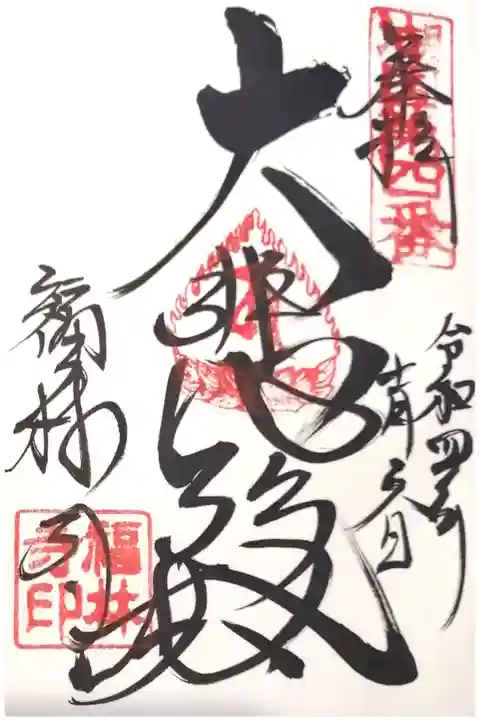 奉拝
令和四年
十一月三日
大悲殿
福林寺
福林寺印